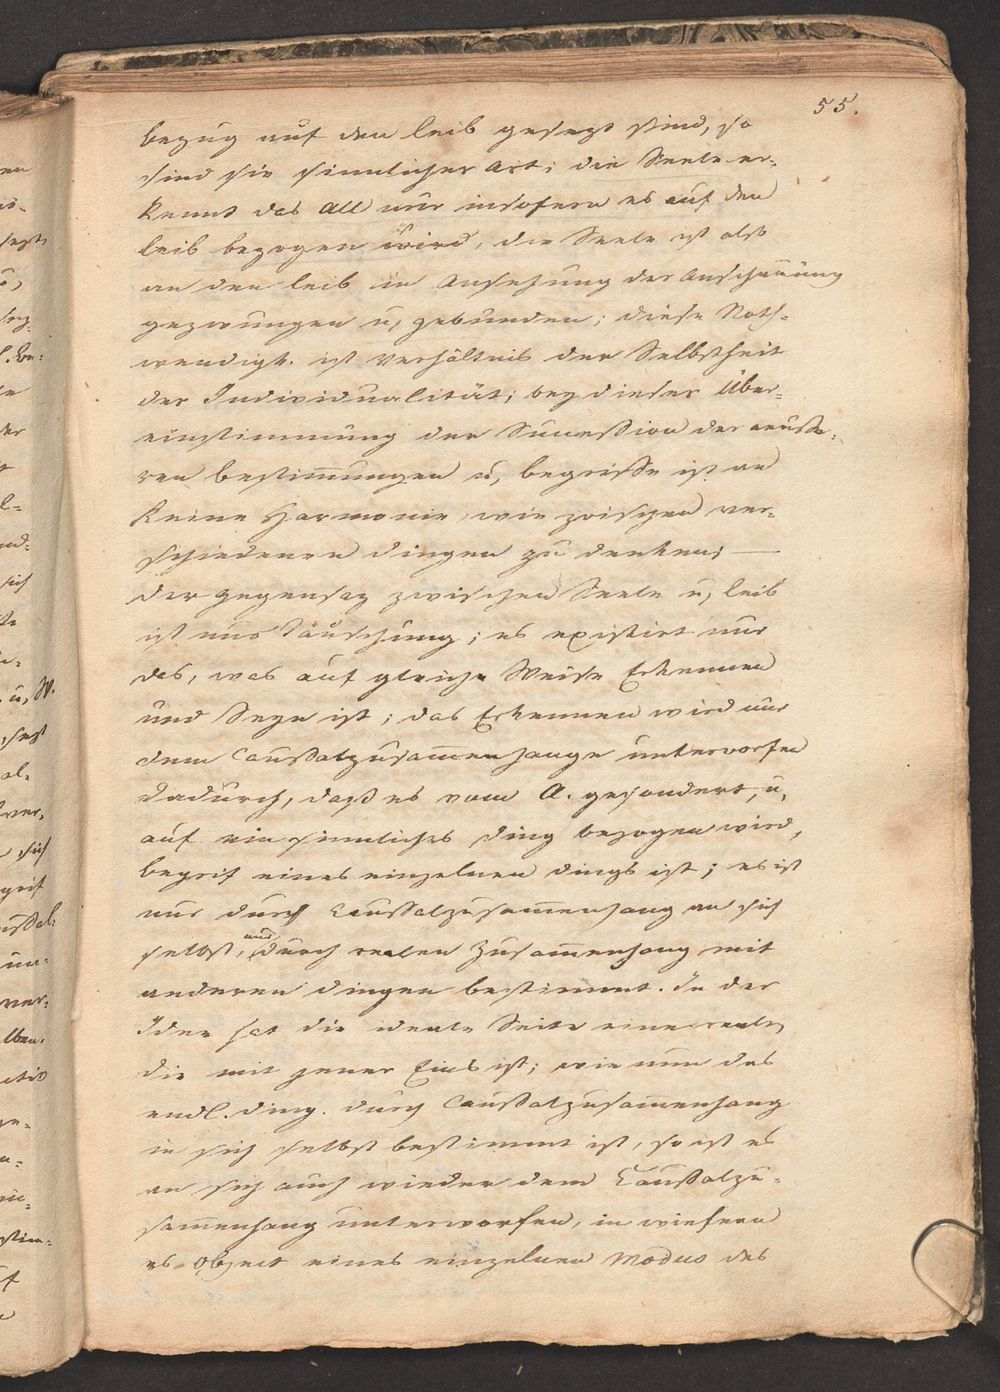 55.
bezug auf den leib gesezt sind, so
sind sie sinnlicher Art; die Seele er-
kennt das All nur insofern es auf den
leib bezogen wird, die Seele ist also
an den leib in Ansehung der Anschauung
gezwungen u, gebunden; diese Noth-
wendigk. ist Verhältnis der Selbstheit
der Individualität; bey dieser Über-
einstimmung der Sucession der äusse-
ren bestim̄ungen u, begriffe ist an
keine Harmonie, wie zwischen ver-
schiedenen dingen zu denken; —
der gegensaz zwischen Seele u, leib
ist nur Täuschung; es existirt nur
das, was auf gleiche Weise Erkennen
und Seyn ist; das Erkennen wird nur
dem Caussalzusam̄enhange unterworfen
dadurch, daß es vom A. gesondert, u,
auf ein sinnliches ding bezogen wird,
begrif eines einzelnen dings ist; es ist
nur durch Caussalzusam̄enhang an sich
selbst, und durch realen Zusam̄enhang mit
anderen dingen bestimmt. In der
Idee hat die ideale Seite eine reale,
die mit jener Eins ist; wie nun das
endl. ding. durch Caussalzusam̄enhang
in sich selbst bestimmt ist, so ist es
an sich auch wieder dem Caussalzu-
sam̄enhang unterworfen, in wiefern
es Object eines einzelnen Modus des